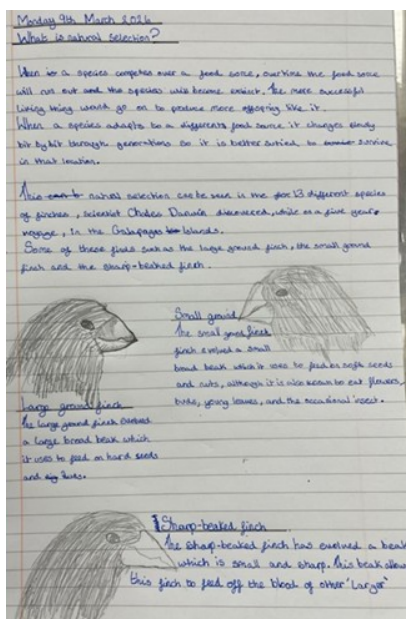 Monday 9th March 2026
What is natural selection?
When a species competes over a food source, overtime the food source
will run out and the species will become extinct. The more successful
living thing would go on to produce more offspring like it.
When a species adapts to a different food source it changes slowly
bit by bit through generations so it is better suited to survive
in that location.
This natural selection can be seen in the 13 different species
of finches, scientist Charles Darwin discovered, while on a five year
voyage, in the Galapagos Islands.
Some of these finds such as the large ground finch, the small ground
finch and the sharp-beaked finch.
Small ground
The small ground finch
finch evolved a small
broad beak which it uses to feed on soft seeds
and nuts, although it is also known to eat flowers,
buds, young leaves, and the occasional insect.
Large ground finch
The large ground finch evolved
a large broad beak which
it uses to feed on hard seeds
and nuts.
Sharp-beaked finch
The sharp-beaked finch has evolved a beak
which is small and sharp. This beak allow
this finch to feed off the blood of other "larger"